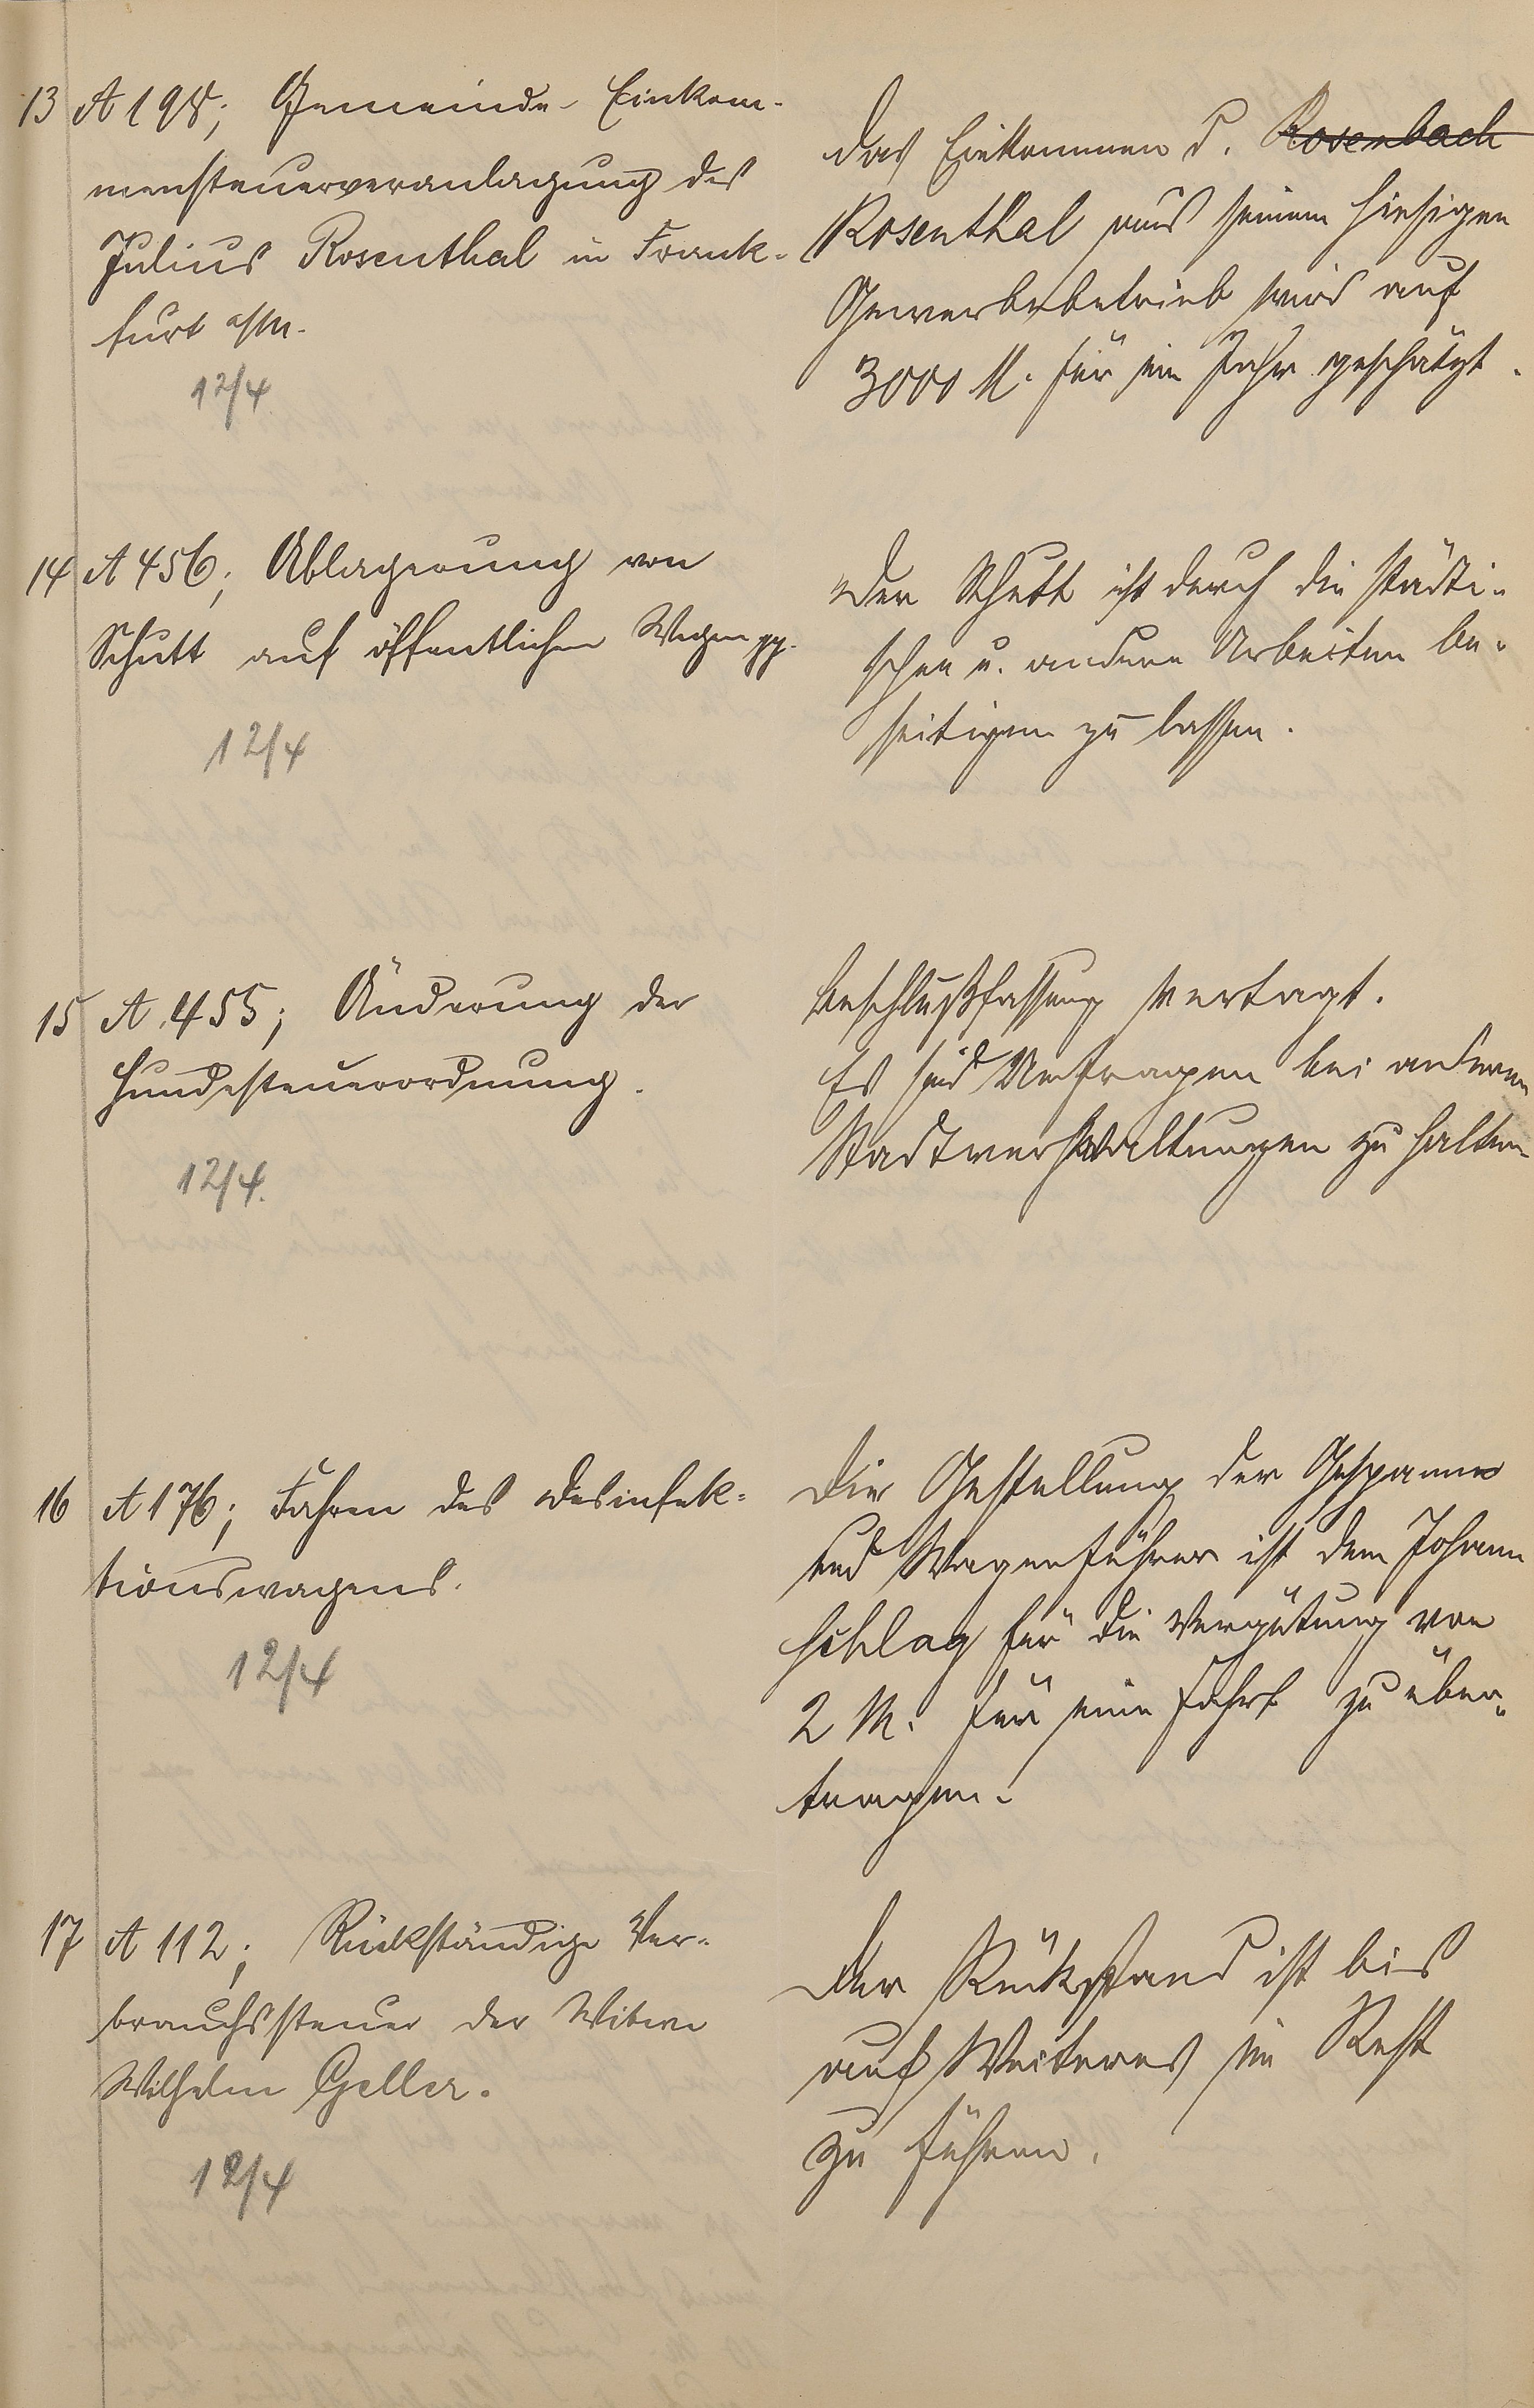 13 A 198; Gemeinde-Einkom-
mensteuerveranlagung des
Julius Rosenthal in Frank-
furt a/M.
12/4.
Das Einkommen d. Rosenbach
Rosenthal aus seinem hiesigen
Gewerbebetrieb wird auf
3000 M. für ein Jahr geschätzt.
14 A 456; Ablagerung von
Schutt auf öffentlichen Wegen pp.
12/4
Der Schutt ist durch die städti-
schen u. andere Arbeiten be-
seitigen zu lassen.
15 A 455; Änderung der
Hundesteuerordnung.
12/4.
Beschlußfassung vertagt.
Es sind Umfragen bei anderen
Stadtverwaltungen zu halten.
16 A 176; Fahren des Desinfek-
tionswagens.
12/4
Die Gestellung der Gespanne
und Wagenführer ist dem Johann
Schlag für die Vergütung von
2 M. für eine Fahrt zu über-
tragen.
17 A 112; Rückständige Ver-
brauchssteuer der Witwe
Wilhelm Geller.
12/4
Der Rückstand ist bis
auf Weiteres in Rest
zu führen.